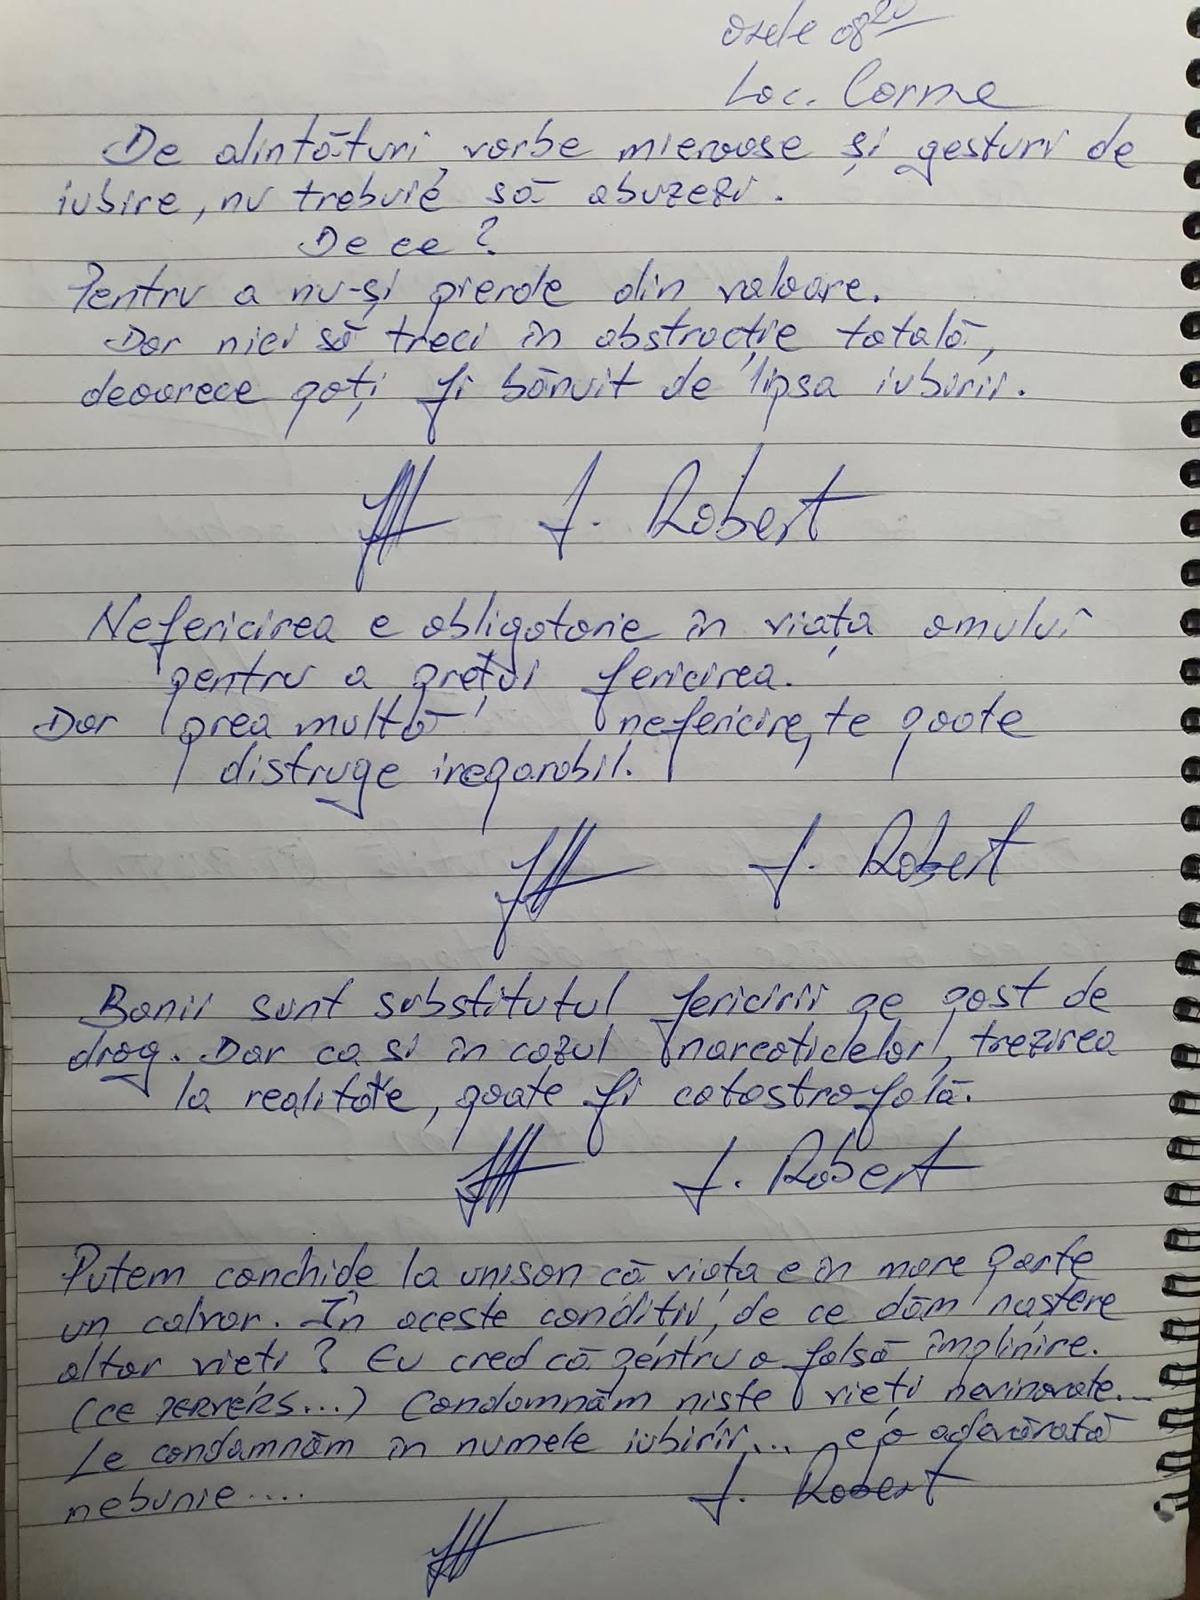 Orele 08²⁰
Loc. Corme
De alintături, vorbe mieroase și gesturi de
iubire, nu trebuie să abuzezi.
De ce?
Pentru a nu-și pierde din valoare.
Dar nici să treci în abstracție totală,
deoarece poți fi bănuit de lipsa iubirii.
J. Robert
Nefericirea e obligatorie în viața omului
pentru a prețui fericirea.
Dar prea multă nefericire, te poate
distruge ireparabil.
J. Robert
Banii sunt substitutul fericirii pe post de
drog. Dar ca si în cazul narcoticelor, trezirea
la realitate, poate fi catastrofală.
J. Robert
Putem conchide la unison că viața e în mare parte
un calvar. În aceste condiții, de ce dăm naștere
altor vieți? Eu cred că pentru o falsă împlinire.
(ce pervers...) Condamnăm niște vieți nevinovate...
Le condamnăm în numele iubirii... e o adevărată
nebunie....
J. Robert